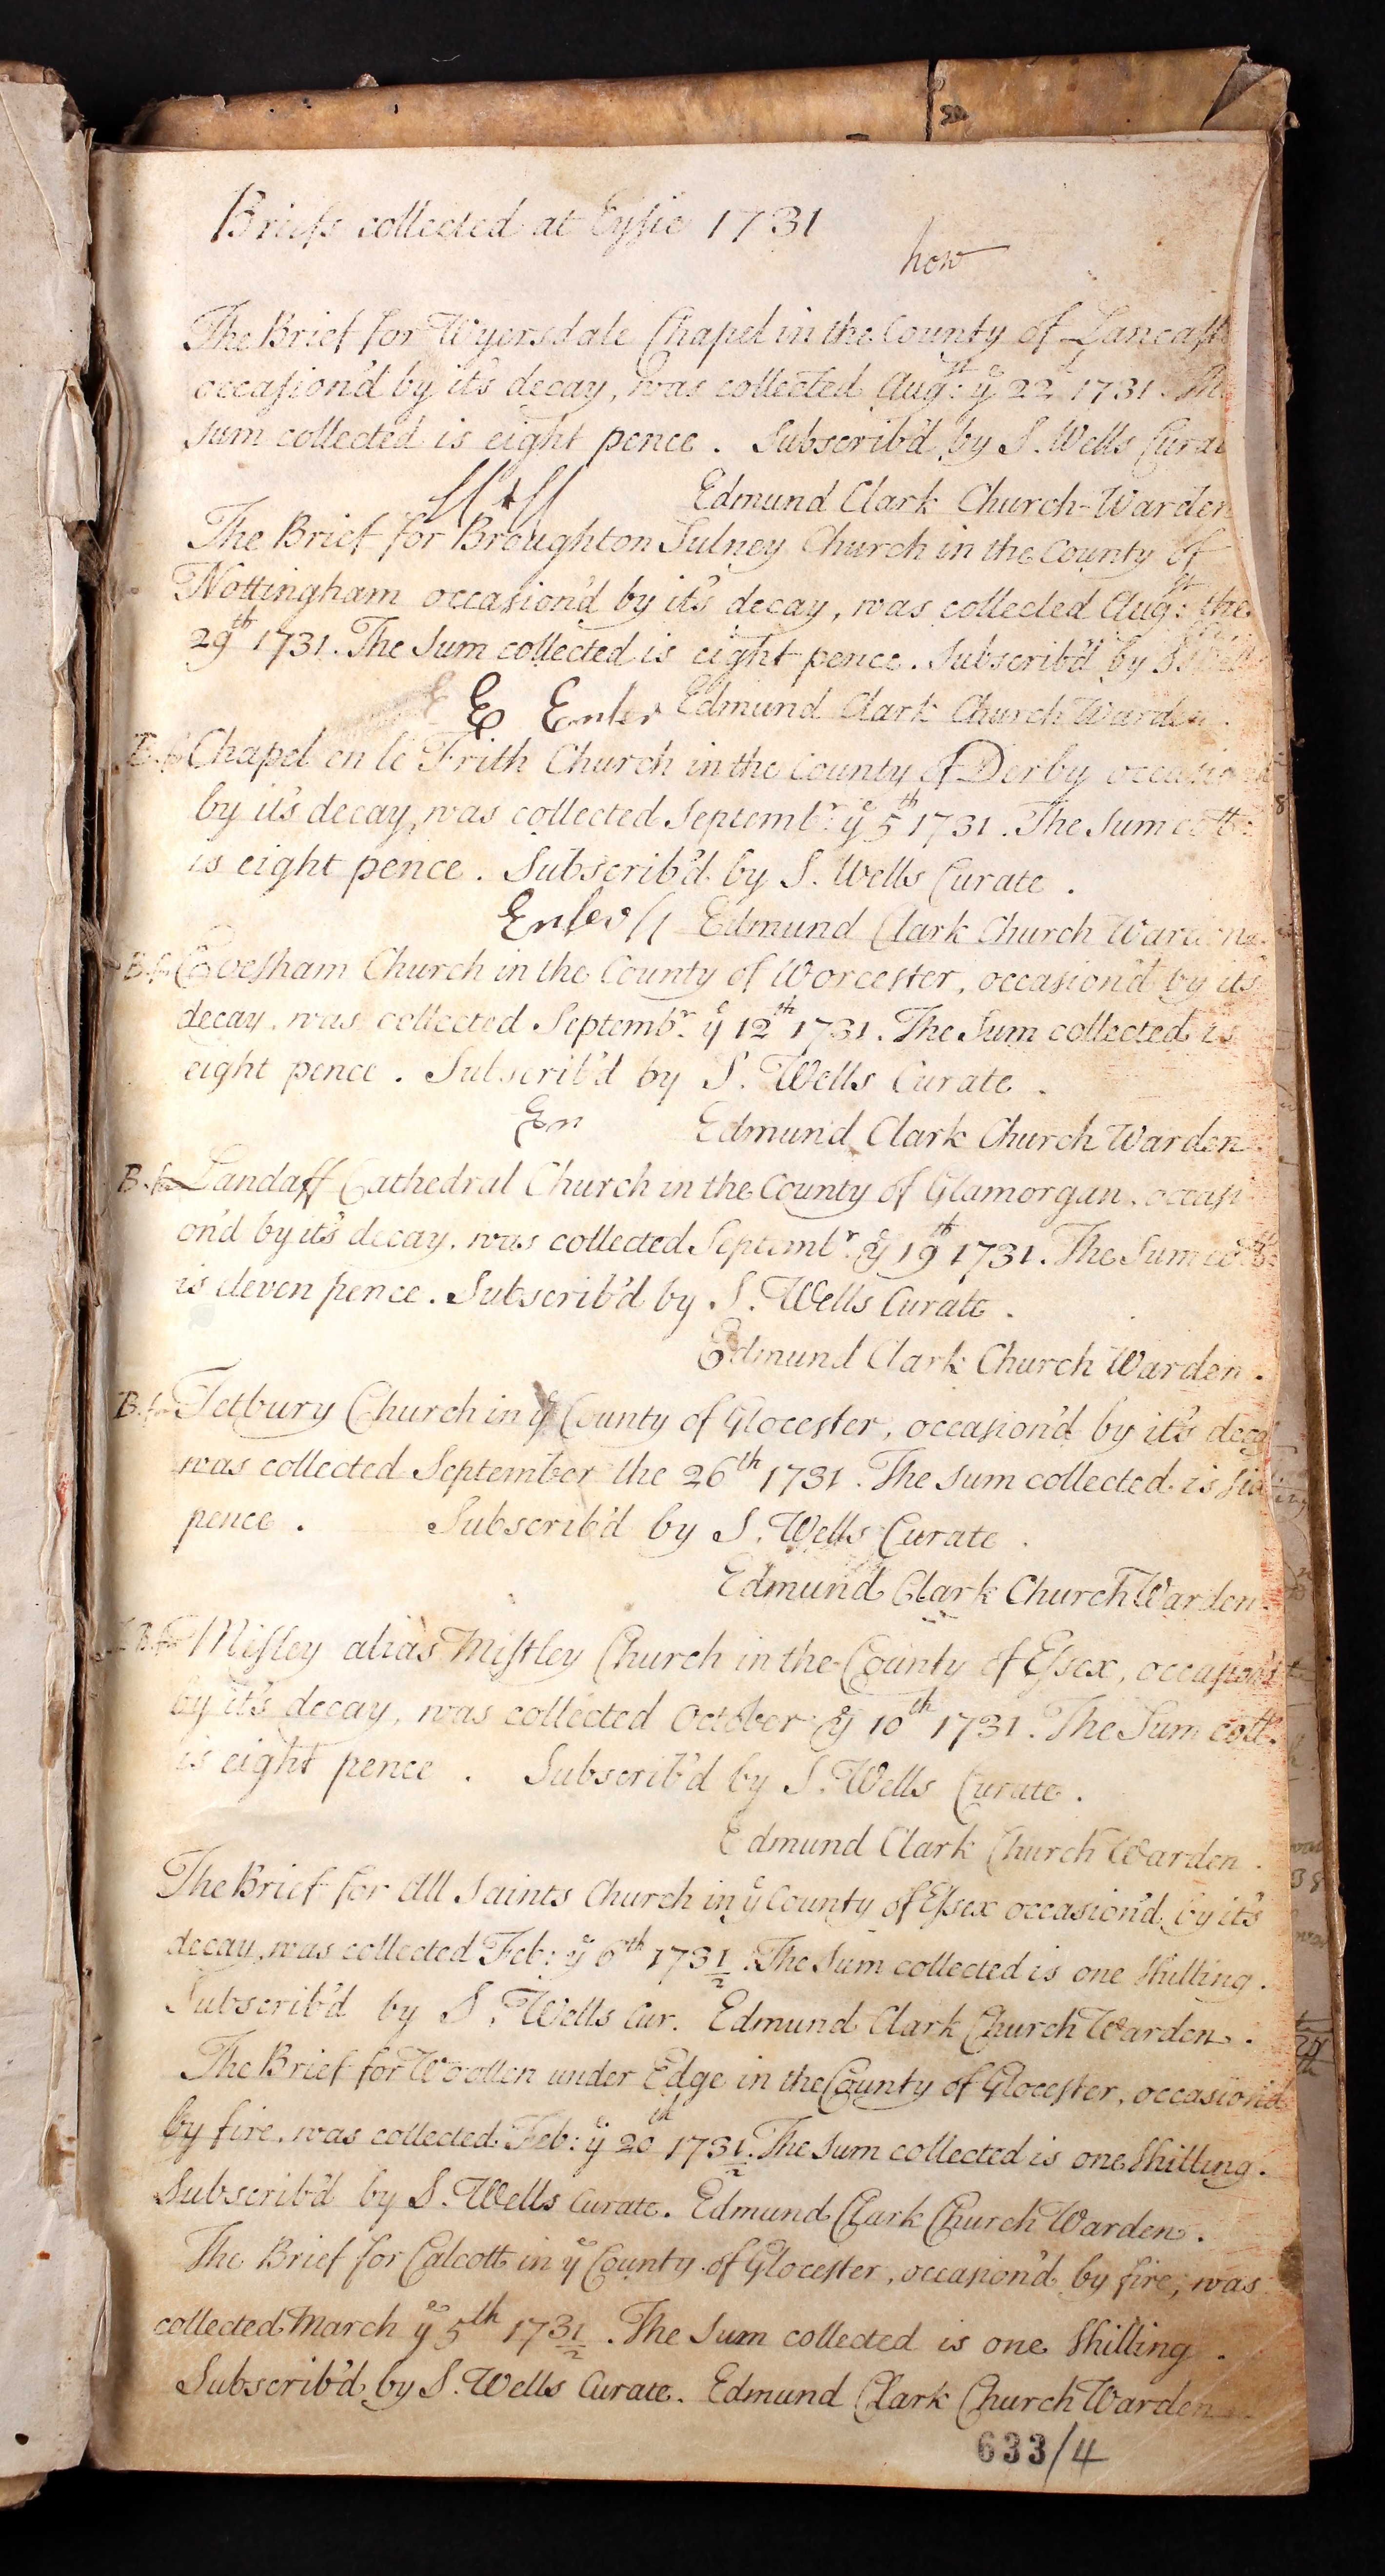 Briefs collected at Eysie 1731
how
The Brief for Wyersdale Chapel in the County of Lancast
occasion'd by it's decay, was collected Augst: ye 22d 1731. The
Sum collected is eight pence. Subscrib'd by S. Wells Curat
Edmund Clark Church-Warden
The Brief for Broughton Sulney Church in the County of
Nottingham occasion'd by it's decay, was collected Augst: the
29th 1731. The Sum collected is eight pence. Subscrib'd by S. Wells
E E Enter Edmund Clark Church Warden.
B. for Chapel en le Frith Church in the County of Derby occasion
by it's decay, was collected Septembr: ye 5th 1731. The Sum coll:
is eight pence. Subscrib'd by S. Wells Curate.
Enter Edmund Clark Church Warden
B. for Evesham Church in the County of Worcester, occasion'd by it's
decay, was collected Septembr: ye 12th 1731. The Sum collected is
eight pence. Subscrib'd by S. Wells Curate.
En Edmund Clark Church Warden
B. for Landaff Cathedral Church in the County of Glamorgan, occasi
on'd by it's decay, was collected Septembr: ye 19th 1731. The Sum coll:
is eleven pence. Subscrib'd by S. Wells Curate.
Edmund Clark Church Warden.
B. for Tetbury Church in ye County of Glocester, occasion'd by it's decay
was collected September the 26th 1731. The Sum collected is six
pence. Subscrib'd by S. Wells Curate.
Edmund Clark Church Warden.
B. for Misley alias Mistley Church in the County of Essex, occasion'd
by it's decay, was collected October ye 10th 1731. The Sum coll:
is eight pence. Subscrib'd by S. Wells Curate.
Edmund Clark Church Warden.
The Brief for All Saints Church in ye County of Essex occasion'd by it's
decay, was collected Feb: ye 6th 1731/2. The Sum collected is one Shilling.
Subscrib'd by S. Wells Cur. Edmund Clark Church Warden.
The Brief for Woollen under Edge in the County of Glocester, occasion'd
by fire, was collected Feb: ye 20th 1731/2. The Sum collected is one Shilling.
Subscrib'd by S. Wells Curate. Edmund Clark Church Warden.
The Brief for Calcott in ye County of Glocester, occasion'd by fire, was
collected March ye 5th 1731/2. The Sum collected is one Shilling.
Subscrib'd by S. Wells Curate. Edmund Clark Church Warden
633/4